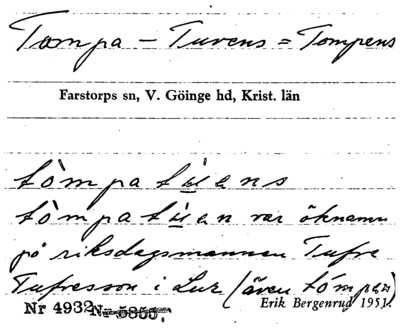 Tompa - Tuvens = Tompens
Farstorps sn, V. Göinge hd, Krist. län
tòmpatu̲ens
tòmpatu̲en var öknamn
på riksdagsmannen Tufve
Tufvesson i Lur (även tómpen)
Erik Bergenrud 1951.
Nr 4932 N 5855.